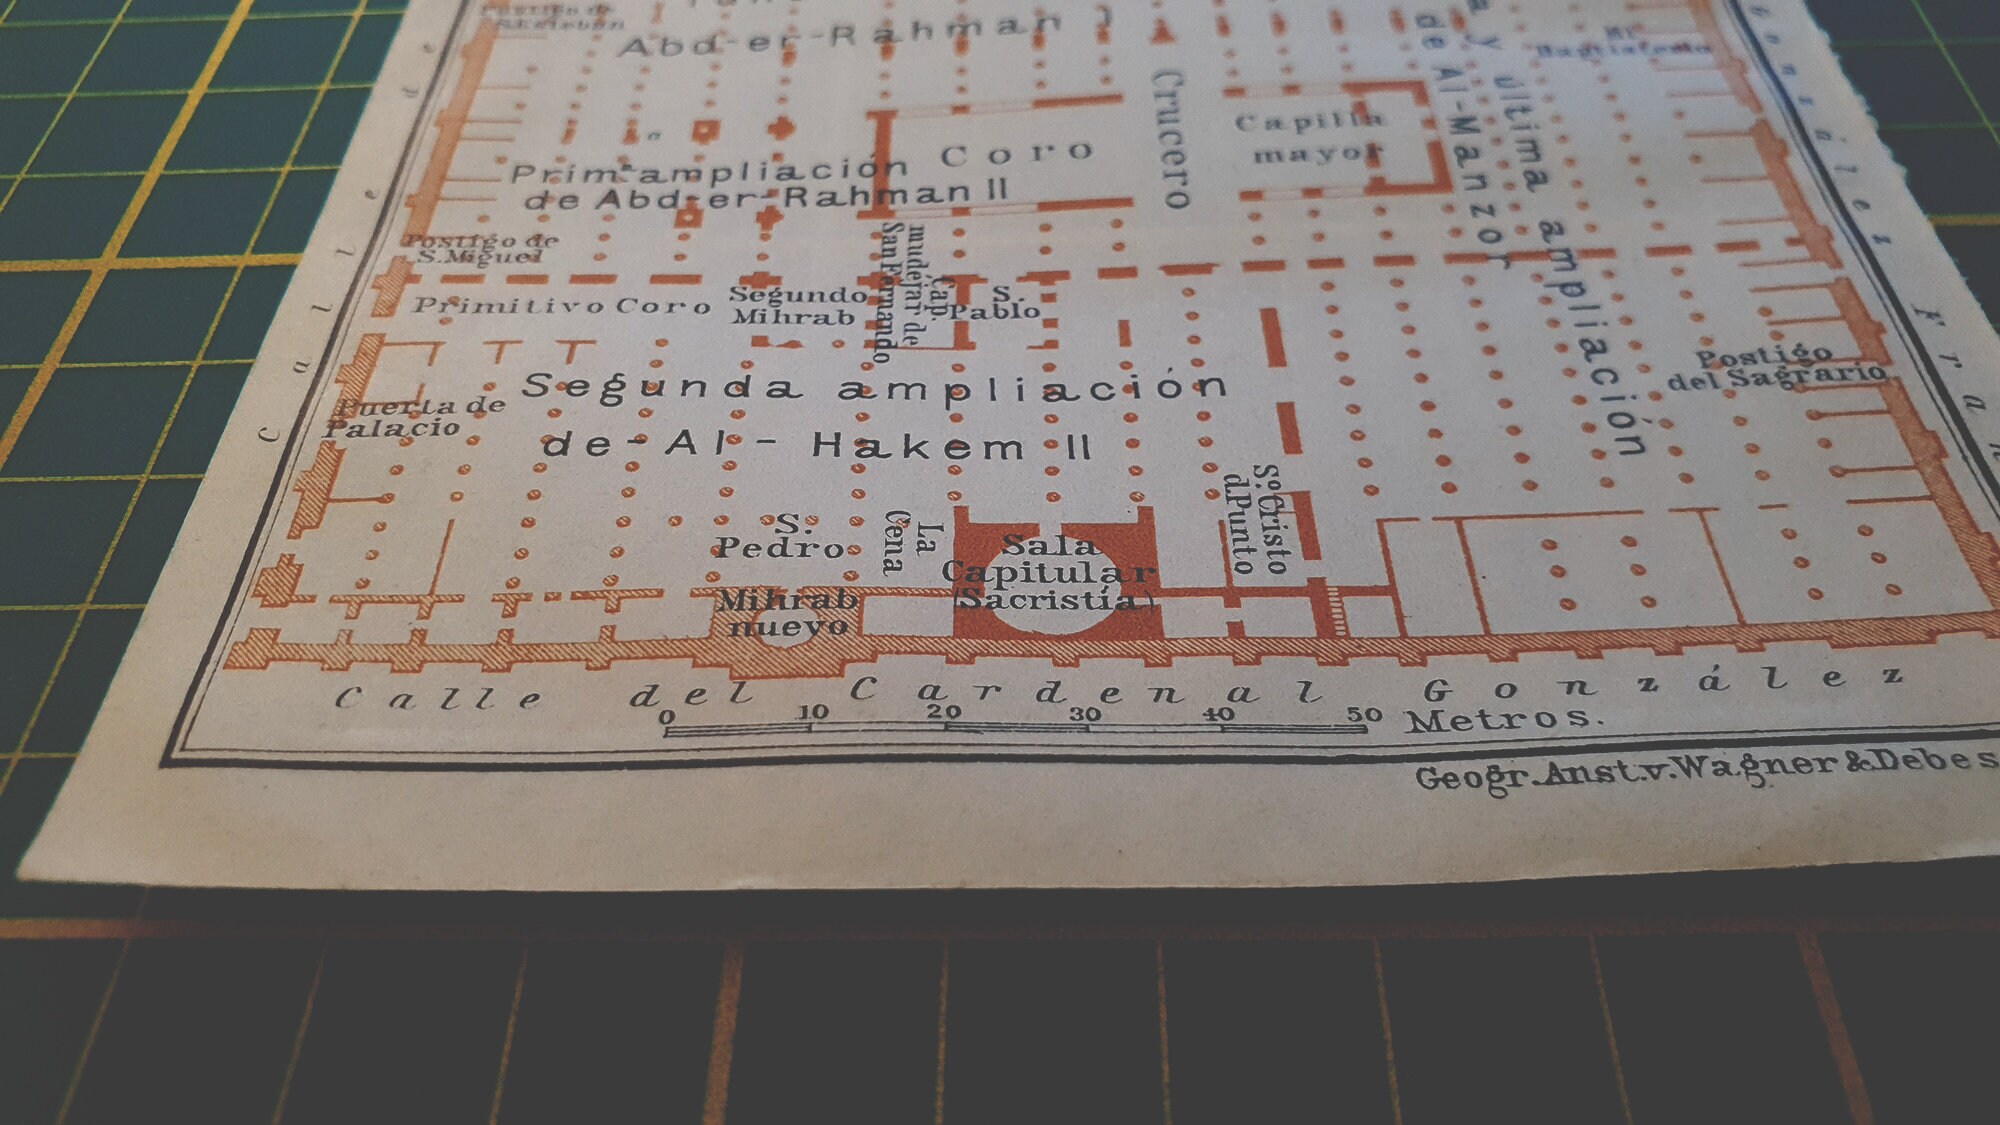 Abd-er-Rahman I
Crucero
Coro
Capilla
mayor
y última ampliación
de Al-Manzor
Primª ampliación
de Abd-er-Rahman II
Postigo de
S. Miguel
Primitivo Coro
Segundo
Mihrab
mudéjar de
San Fernando
Cap.
S.
Pablo
Postigo
del Sagrario
Segunda ampliación
de Al-Hakem II
Puerta de
Palacio
Calle
S.
Pedro
La
Cena
Sala
Capitular
(Sacristía)
Sº Cristo
d. Punto
Mihrab
nuevo
Calle del Cardenal González
0 10 20 30 40 50 Metros.
Geogr. Anst. v. Wagner & Debes